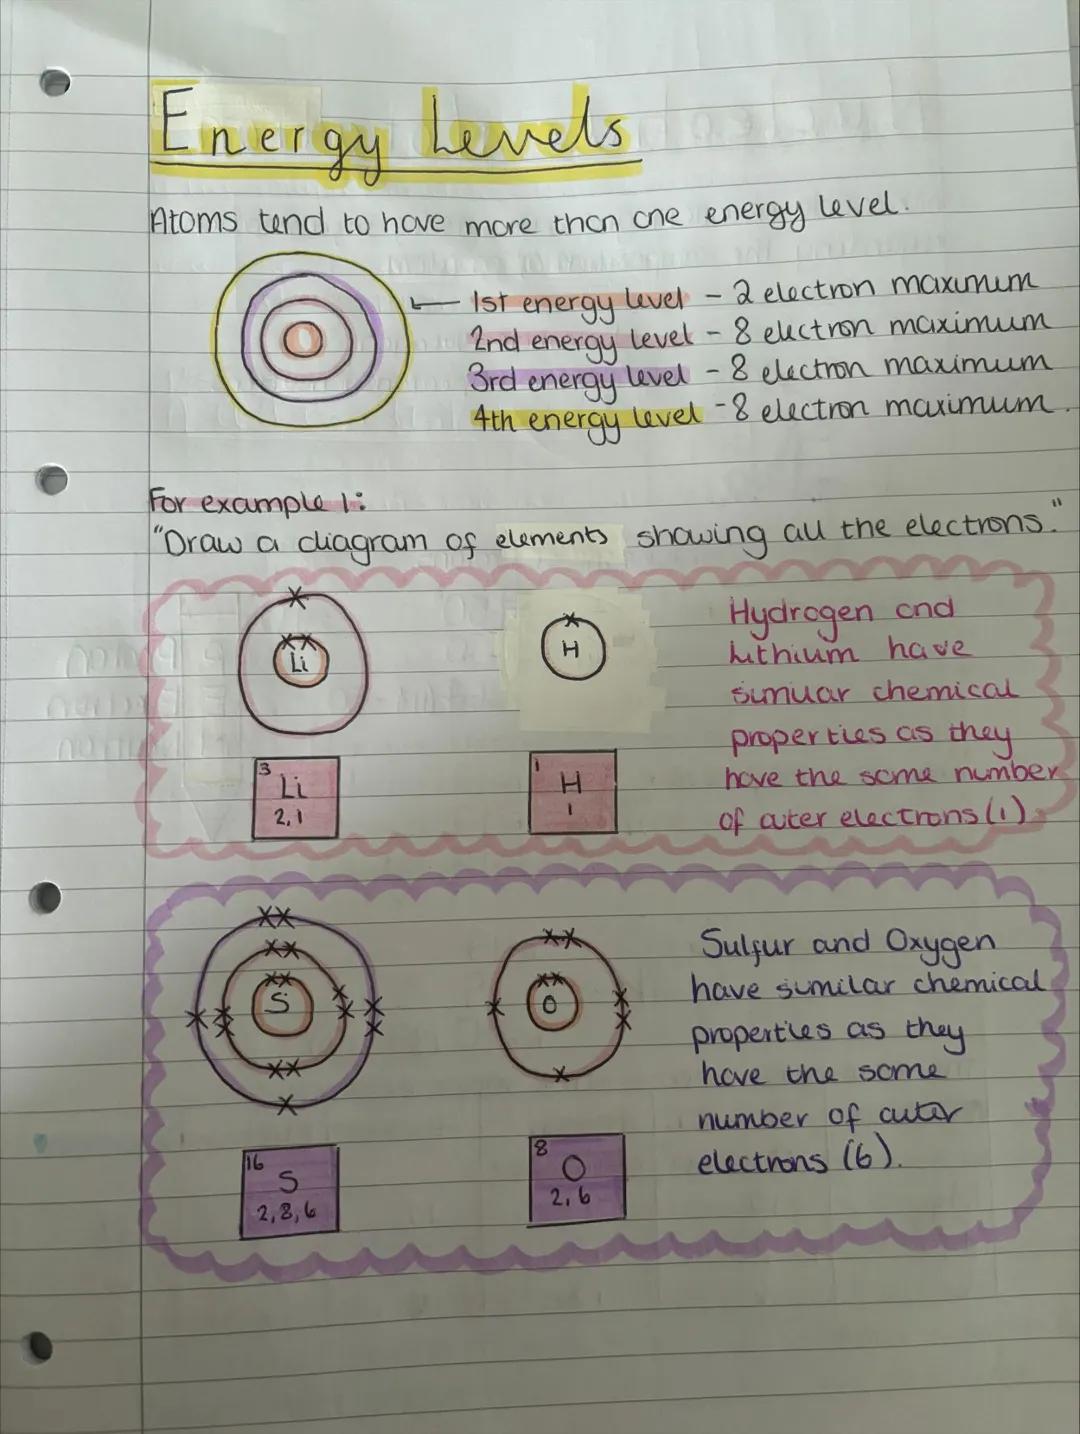 Energy Levels
Atoms tend to have more than one energy level.
1st energy level - 2 electron maximum
2nd energy level - 8 electron maximum
3rd energy level - 8 electron maximum
4th energy level - 8 electron maximum.
For example 1:
"Draw a diagram of elements showing all the electrons."
Li
H
3
Li
2,1
1
H
1
Hydrogen and
Lithium have
similar chemical
properties as they
have the same number
of outer electrons (1).
S
O
16
S
2,8,6
8
O
2,6
Sulfur and Oxygen
have similar chemical
properties as they
have the same
number of outer
electrons (6).